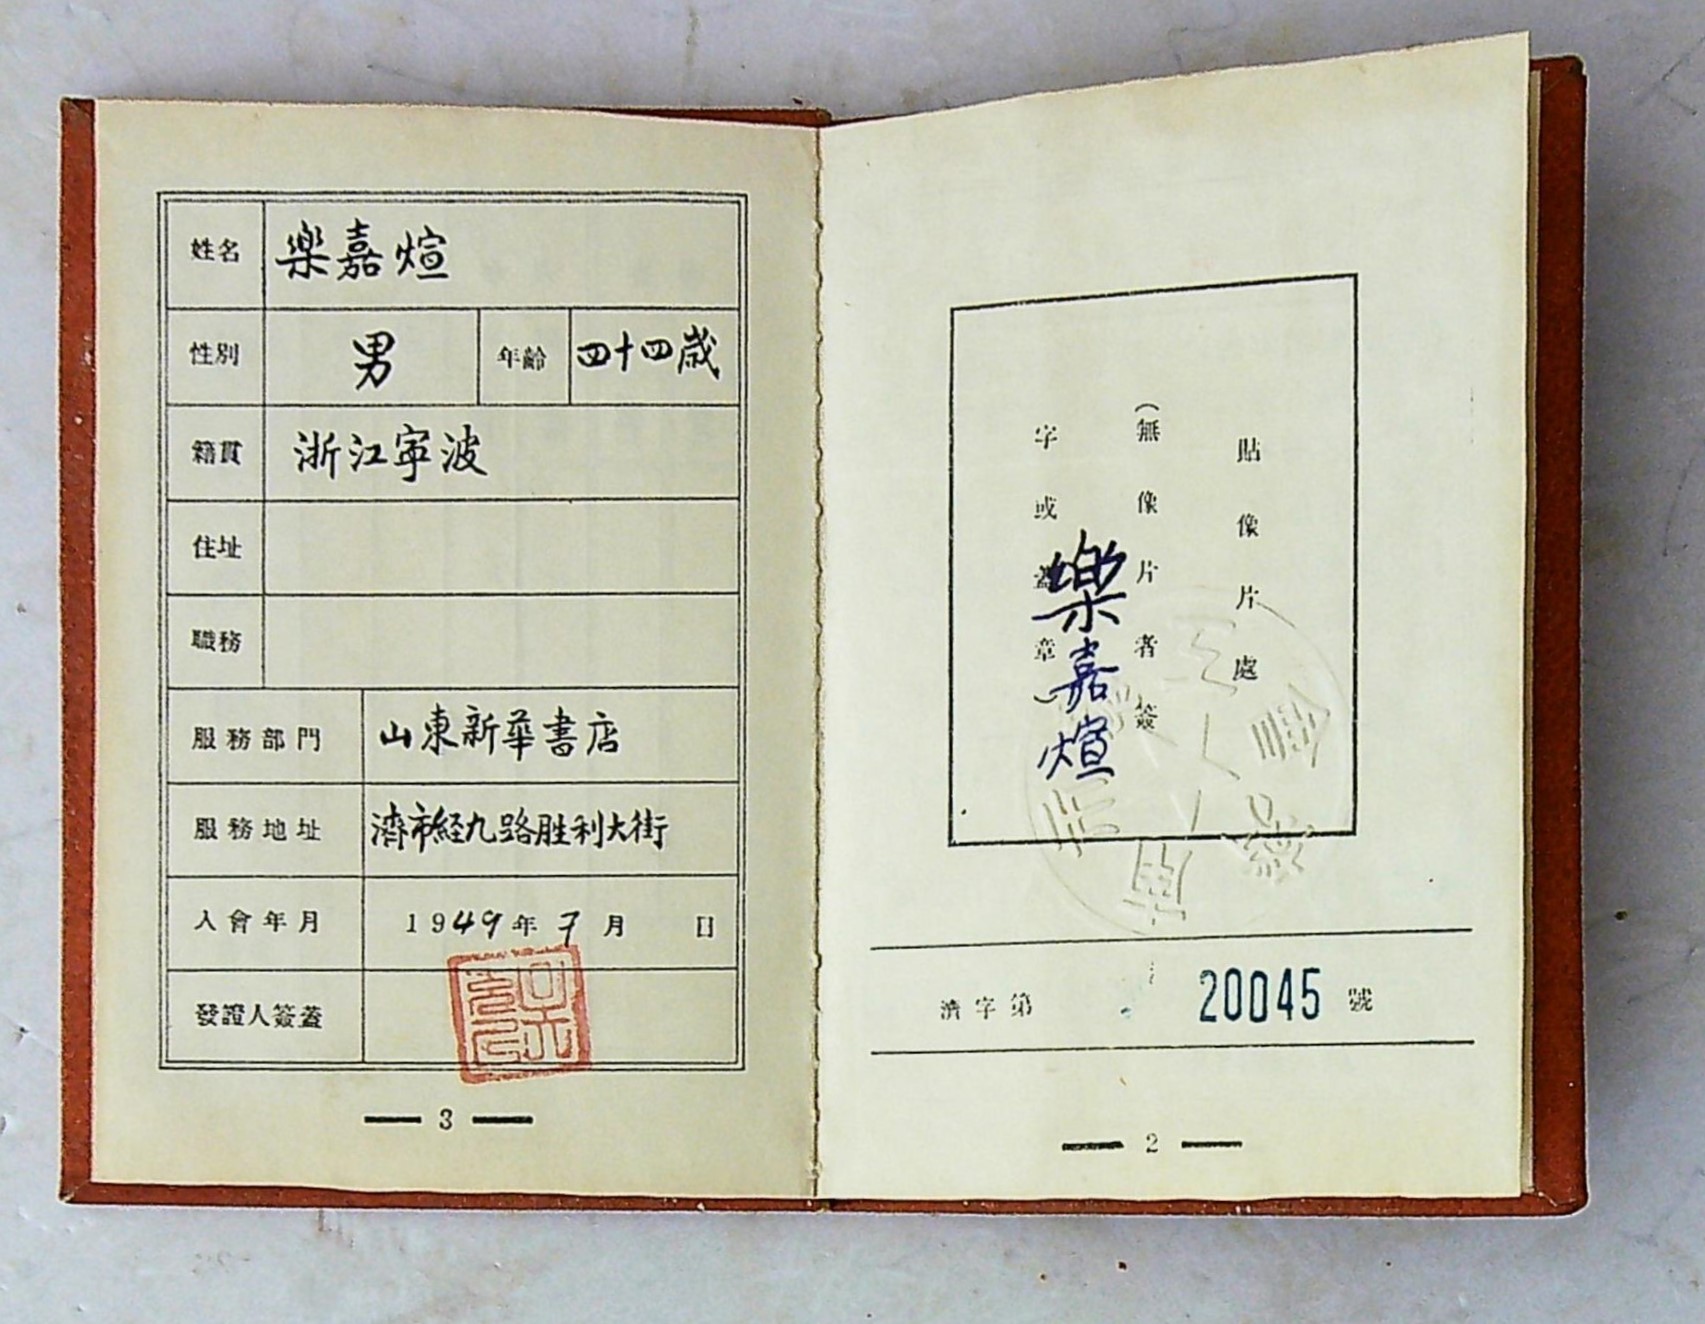 貼像片處
（無像片者簽
字或蓋章）
樂嘉煊
濟字第 20045 號
2
姓名 樂嘉煊
性別 男 年齡 四十四歲
籍貫 浙江寧波
住址
職務
服務部門 山東新華書店
服務地址 濟市經九路胜利大街
入會年月 1949年7月 日
發證人簽蓋
3